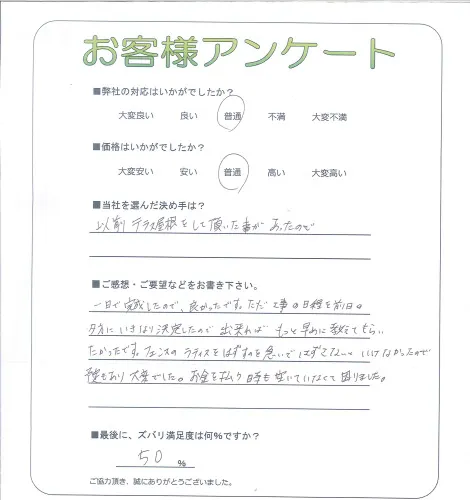 お客様アンケート
■弊社の対応はいかがでしたか?
大変良い 良い 普通 不満 大変不満
■価格はいかがでしたか?
大変安い 安い 普通 高い 大変高い
■当社を選んだ決め手は?
以前テラス屋根をして頂いた事があったので
■ご感想・ご要望などをお書き下さい。
一日で完成したので、良かったです。ただ工事の日程を前日の
夕方にいきなり決定したので出来ればもっと早めに教えてもらい
たかったです。フェンスのラティスをはずすのを急いではずさないといけなかったので
もあり大変でした。お金を払う日時も空いていなくて困りました。
■最後に、ズバリ満足度は何%ですか?
50 %
ご協力頂き、誠にありがとうございました。